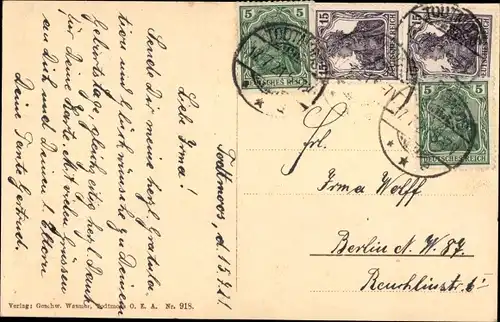 Todtmoos, d. 15.7.21
Liebe Irma!
Sende Dir meine herzl. Gratula-
tion und Glückwünsche zu Deinem
Geburtstage, gleichzeitig herzl. Dank
für Deine Karte. Mit vielen Grüssen
an Dich und Deinen l. Eltern
Deine Tante Gertrud.
Verlag: Geschw. Todtmoos O. Z. A. Nr. 918.
5
15
15
5
DEUTSCHES REICH
DEUTSCHES REICH
TODTMOOS
TODTMOOS
Frl.
Irma Wolff
Berlin N. W. 87.
Reuchlinstr.